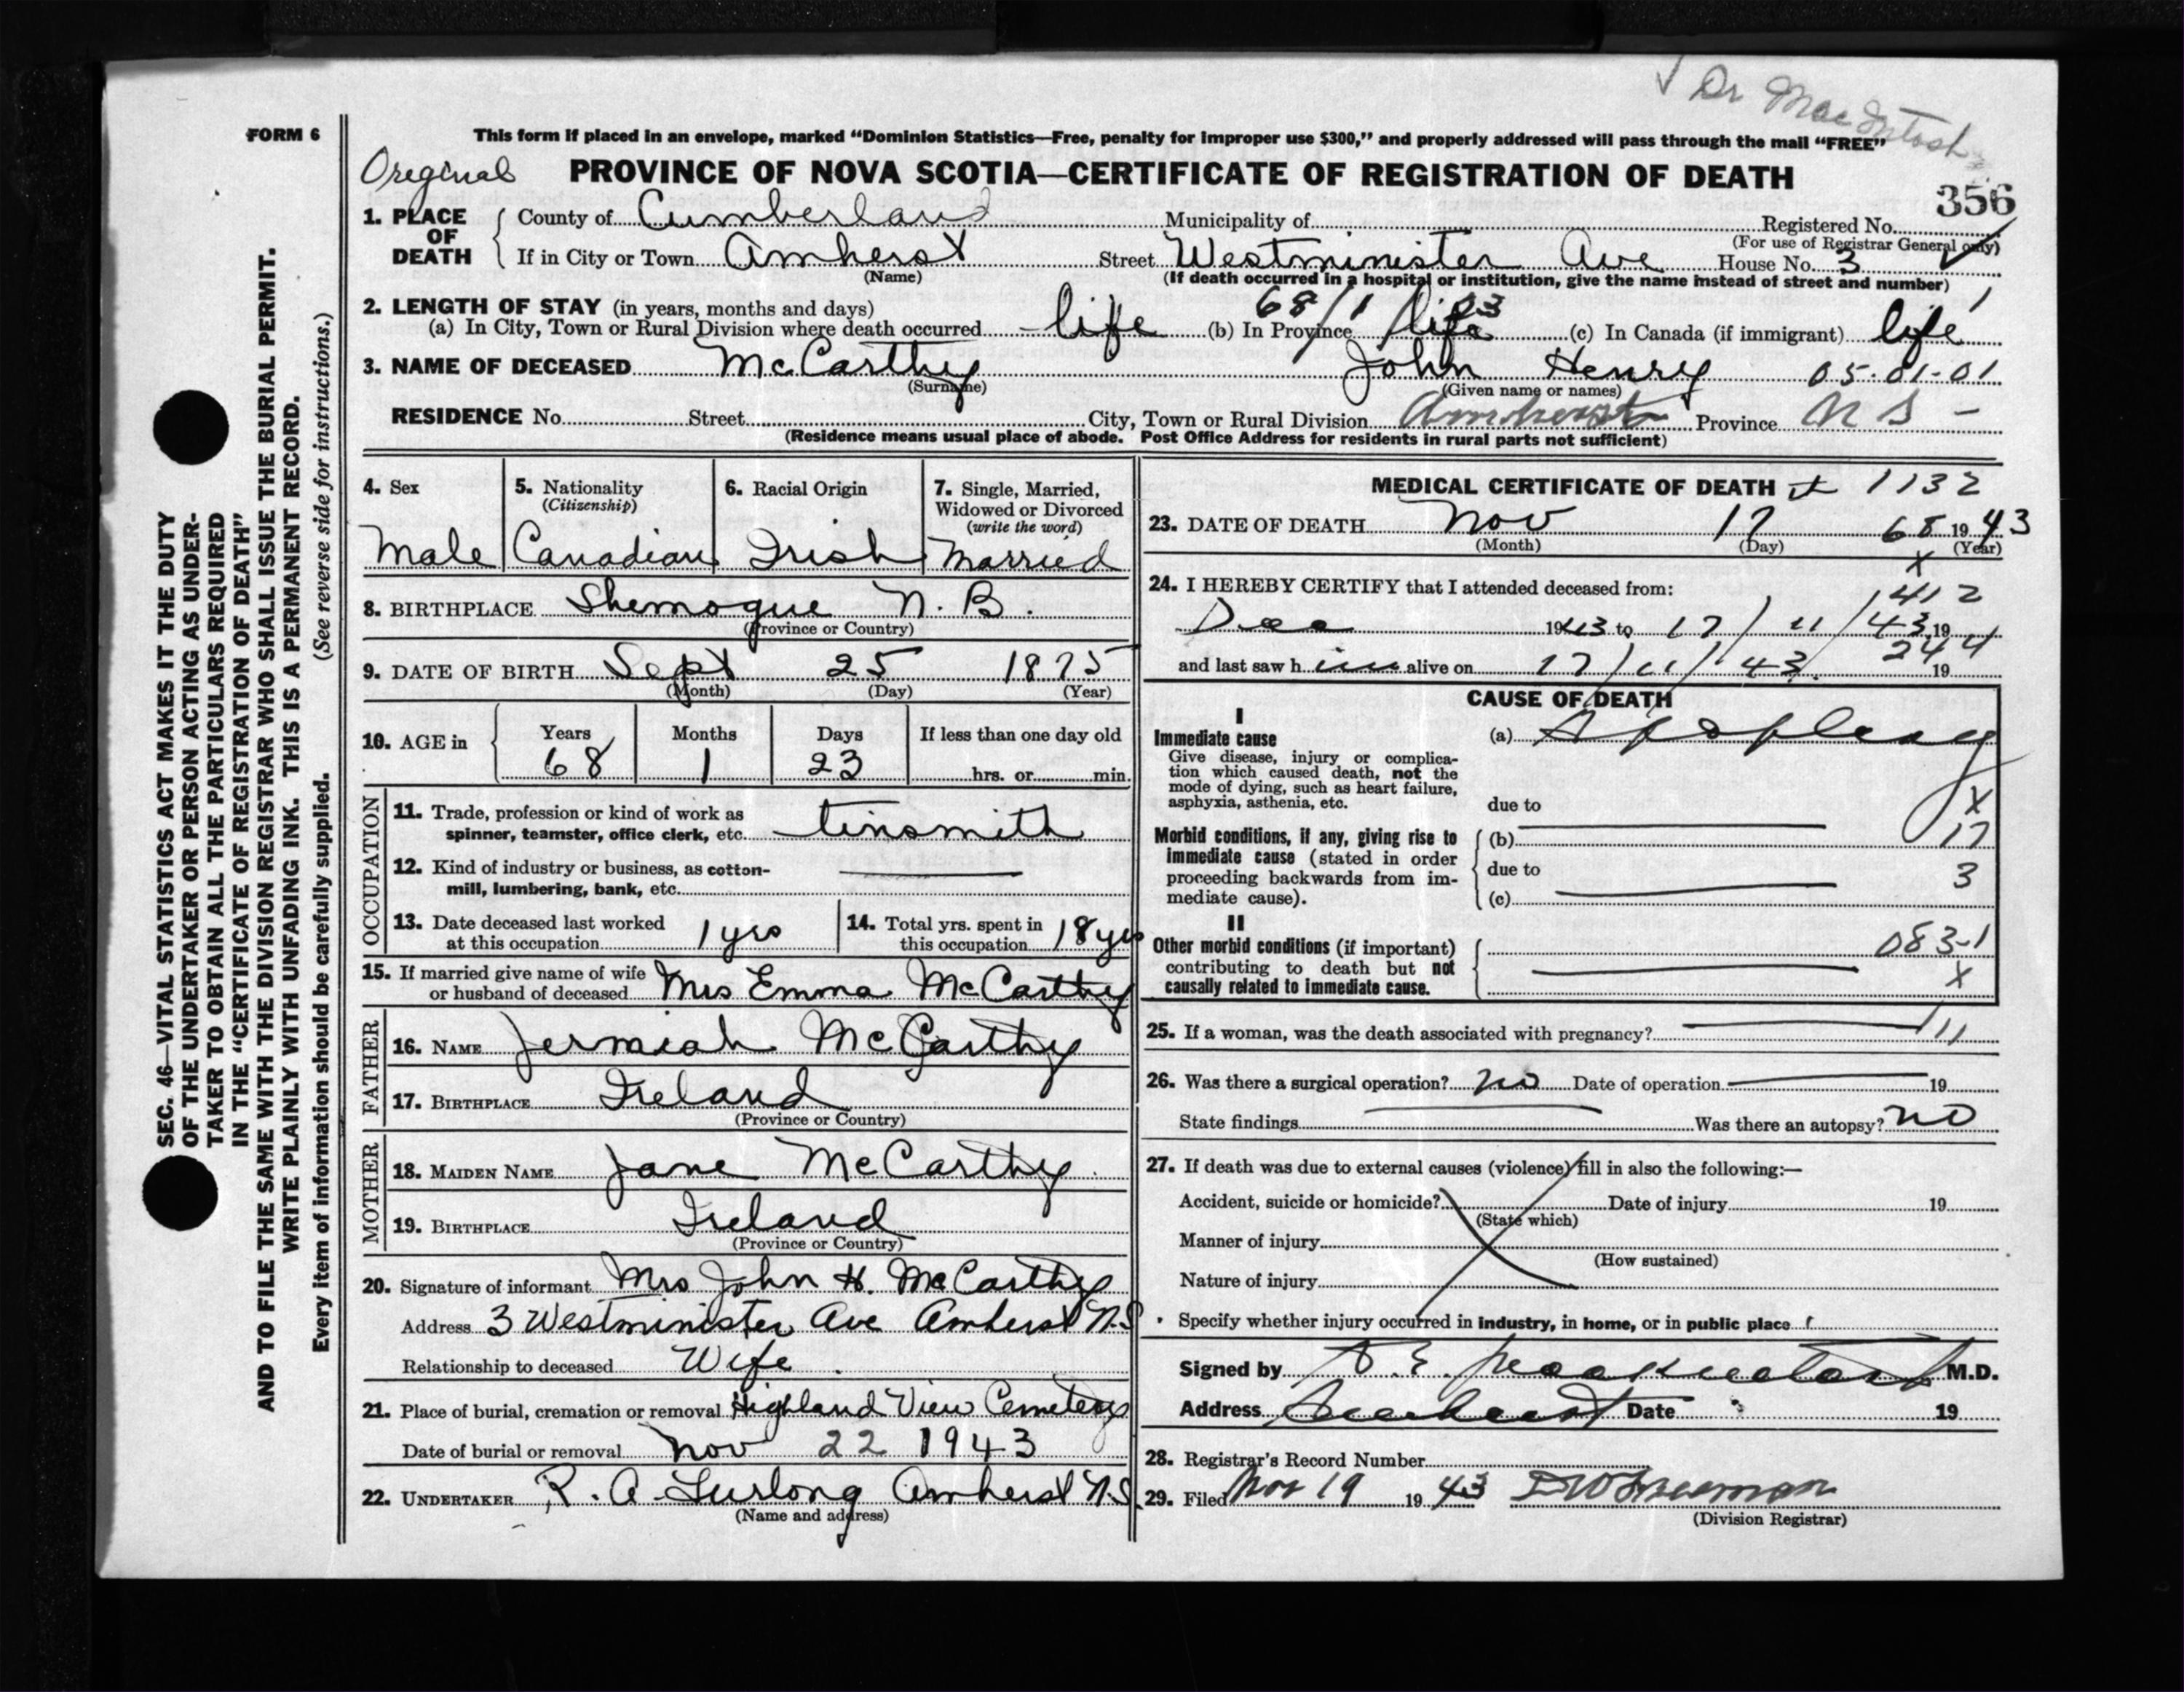 ✓ Dr MacIntosh
FORM 6
This form if placed in an envelope, marked “Dominion Statistics—Free, penalty for improper use $300,” and properly addressed will pass through the mail “FREE”
Oreginal PROVINCE OF NOVA SCOTIA—CERTIFICATE OF REGISTRATION OF DEATH
356
1. PLACE OF DEATH { County of Cumberland Municipality of Registered No.
(For use of Registrar General only)
If in City or Town Amherst Street Westminister Ave House No. 3
(Name) (If death occurred in a hospital or institution, give the name instead of street and number)
2. LENGTH OF STAY (in years, months and days) 68/1/23
(a) In City, Town or Rural Division where death occurred life (b) In Province life (c) In Canada (if immigrant) life
3. NAME OF DECEASED McCarthy John Henry 05-01-01
(Surname) (Given name or names)
RESIDENCE No. Street City, Town or Rural Division Amherst Province N S –
(Residence means usual place of abode. Post Office Address for residents in rural parts not sufficient)
4. Sex 5. Nationality 6. Racial Origin 7. Single, Married,
(Citizenship) Widowed or Divorced
(write the word)
Male Canadian Irish Married
8. BIRTHPLACE Shemogue N. B.
(Province or Country)
9. DATE OF BIRTH Sept 25 1875
(Month) (Day) (Year)
10. AGE in { Years Months Days If less than one day old
68 1 23 hrs. or min.
OCCUPATION
11. Trade, profession or kind of work as
spinner, teamster, office clerk, etc. tinsmith
12. Kind of industry or business, as cotton-
mill, lumbering, bank, etc.
13. Date deceased last worked
at this occupation 1 yrs
14. Total yrs. spent in
this occupation 18 yrs
15. If married give name of wife
or husband of deceased Mrs Emma McCarthy
FATHER
16. NAME Jermiah McCarthy
17. BIRTHPLACE Ireland
(Province or Country)
MOTHER
18. MAIDEN NAME Jane McCarthy
19. BIRTHPLACE Ireland
(Province or Country)
20. Signature of informant Mrs John H. McCarthy
Address 3 Westminister Ave Amherst N.S
Relationship to deceased Wife
21. Place of burial, cremation or removal Highland View Cemetery
Date of burial or removal Nov 22 1943
22. UNDERTAKER R. A. Furlong Amherst N.S.
(Name and address)
MEDICAL CERTIFICATE OF DEATH 1132
23. DATE OF DEATH Nov 17 68 1943
(Month) (Day) (Year)
x
24. I HEREBY CERTIFY that I attended deceased from:
412
Dec 1943 to 17/11/43 19
244
and last saw him alive on 17/11/43 19
CAUSE OF DEATH
I
Immediate cause (a) Apoplexy
Give disease, injury or complica-
tion which caused death, not the
mode of dying, such as heart failure,
asphyxia, asthenia, etc. due to X
Morbid conditions, if any, giving rise to (b) 17
immediate cause (stated in order
proceeding backwards from im- due to 3
mediate cause). (c)
II
Other morbid conditions (if important) 083-1
contributing to death but not
causally related to immediate cause. X
25. If a woman, was the death associated with pregnancy? 111
26. Was there a surgical operation? no Date of operation 19
State findings Was there an autopsy? no
27. If death was due to external causes (violence) fill in also the following:—
Accident, suicide or homicide? Date of injury 19
(State which)
Manner of injury
(How sustained)
Nature of injury
Specify whether injury occurred in industry, in home, or in public place
Signed by M.D.
Address Amherst Date 19
28. Registrar's Record Number
29. Filed Nov 19 1943
(Division Registrar)
SEC. 46—VITAL STATISTICS ACT MAKES IT THE DUTY
OF THE UNDERTAKER OR PERSON ACTING AS UNDER-
TAKER TO OBTAIN ALL THE PARTICULARS REQUIRED
IN THE “CERTIFICATE OF REGISTRATION OF DEATH”
AND TO FILE THE SAME WITH THE DIVISION REGISTRAR WHO SHALL ISSUE THE BURIAL PERMIT.
WRITE PLAINLY WITH UNFADING INK. THIS IS A PERMANENT RECORD.
Every item of information should be carefully supplied. (See reverse side for instructions.)